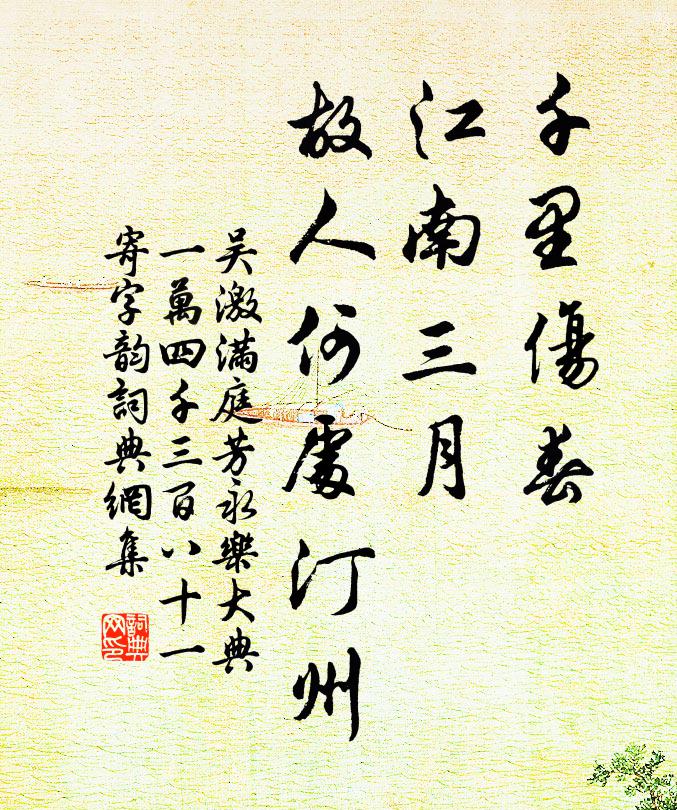 千里傷春
江南三月
故人何處汀州
吴激滿庭芳永樂大典
一萬四千三百八十一
寄字韵詞典網集
詞典網印